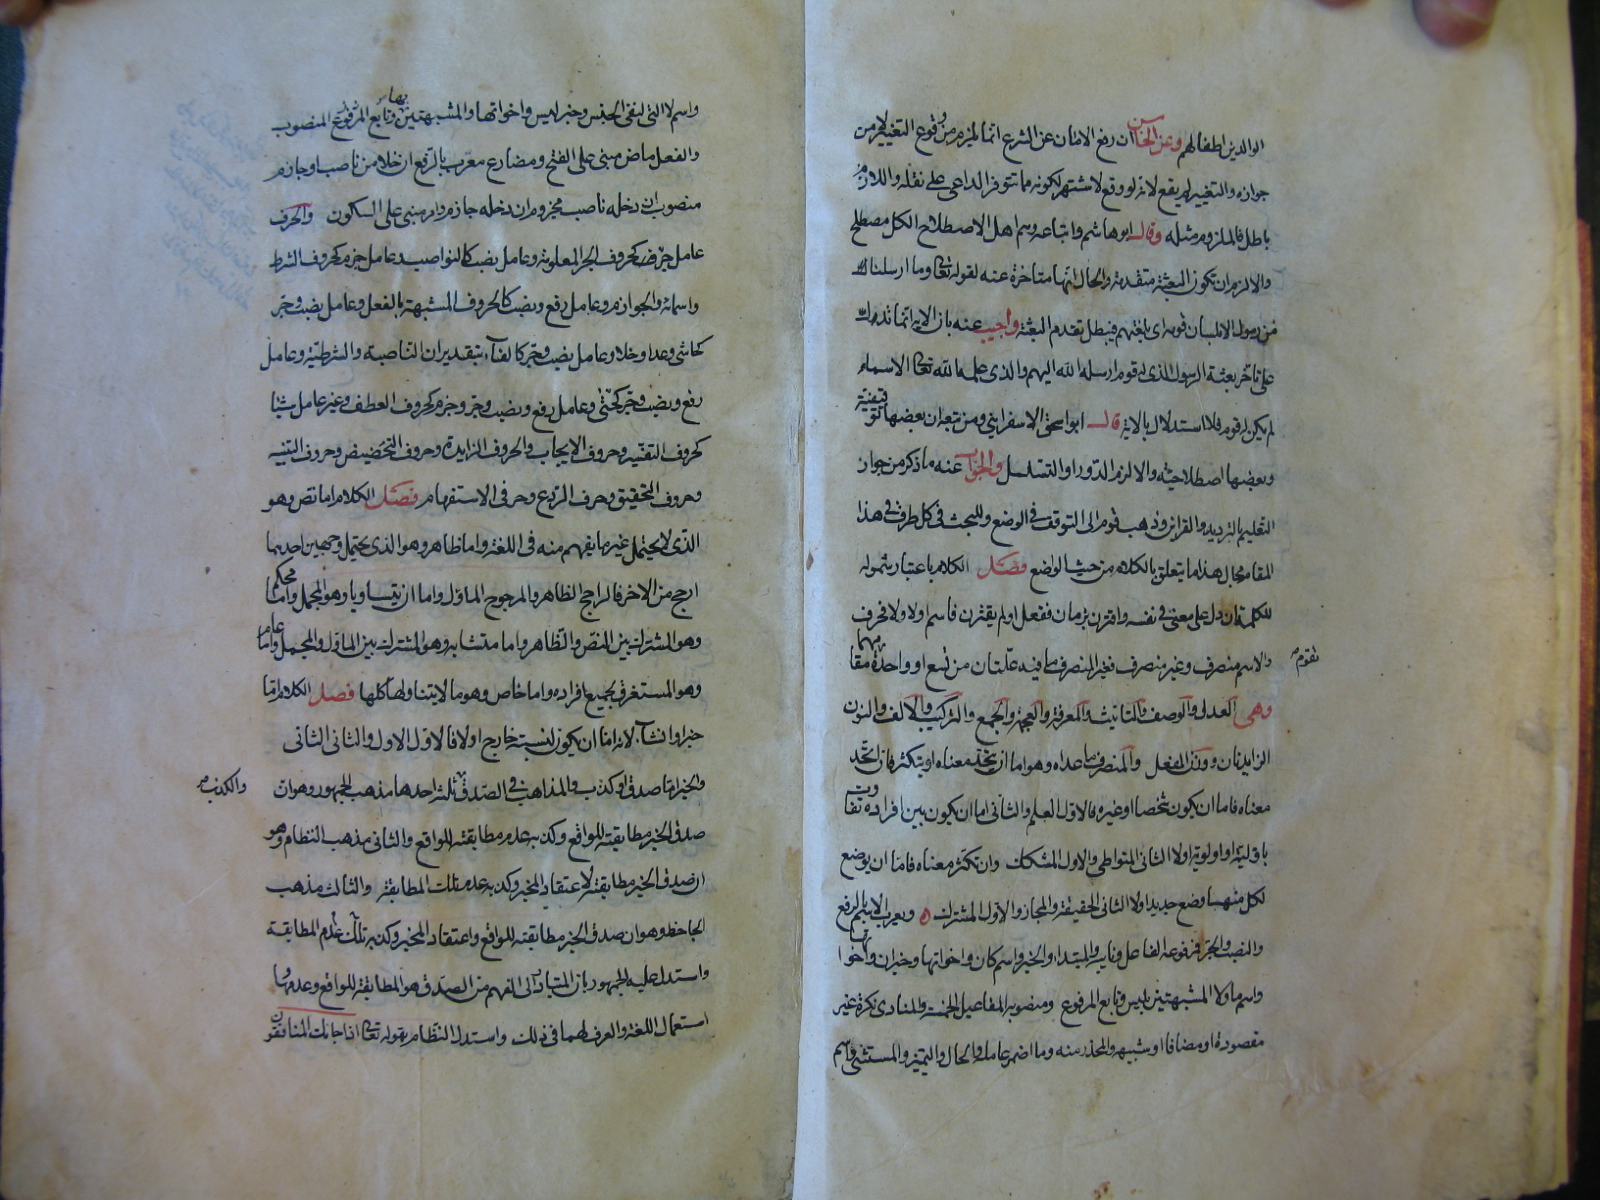 الوالدين اطفالهم وعن الخامس ان رفع الامان عن الشرع انما يلزم من وقوع التغيير لا من
جوازه والتغيير لم يقع لانه لو وقع لاشتهر لكونه مما تتوفر الداعى على نقله واللازم
باطل فالملزوم مثله وقال ابو هاشم واتباعه وسم اهل الاصطلاح الكل مصطلح
والا لزم ان تكون البعثة متقدمة والحال انها متاخرة عنه لقوله تعالى وما ارسلنا
من رسول الا بلسان قومه اى بلغتهم فيبطل تقدم البعثة واجيب عنه بان الاية انما تدل
على تاخر بعثة الرسول الذى له قوم ارسله الله اليهم والذى علمه الله تعالى الاسماء
لم يكن له قوم فلا استدلال بالاية قال ابو اسحق الاسفراينى ومن تبعه ان بعضها توقيفية
وبعضها اصطلاحية والا لزم الدور او التسلسل والجواب عنه ما ذكر من جواز
التعليم بالترديد والقراين وذهب قوم الى التوقف فى الوضع وللبحث فى كل طرف فى هذا
المقام مجال هذا ما يتعلق بالكلام من حيث الوضع فصل الكلام باعتبار شموله
للكلمة ان دل على معنى فى نفسه واقترن بزمان ففعل او لم يقترن فاسم اولا ولا فحرف
والاسم منصرف وغير منصرف فغير المنصرف ما فيه علتان من تسع او واحدة منها مقا
تقوم
وهى العدل والوصف والتانيث والمعرفة والعجمة والجمع والتركيب والالف والنون
الزايدتان ووزن الفعل والمنصرف ما عداه وهو اما ان يتحد معناه او يتكثر فان اتحد
معناه فاما ان يكون شخصا او غيره فالاول العلم والثانى اما ان يكون بين افراده تفاوت
باقلية او اولوية اولا الثانى المتواطى والاول المشكك وان تكثر معناه فاما ان يوضع
لكل منهما وضع جديد اولا الثانى الحقيقة والمجاز والاول المشترك ويعرب الاسم بالرفع
والنصب والجر فمرفوعه الفاعل ونايبه والمبتداء والخبر واسم كان واخواتها وخبر ان واخواتها
واسم ما ولا المشبهتين بليس وتابع المرفوع ومنصوبه المفاعيل الخمسة والمنادى نكرة غير
مقصودة او مضافا او شبيهه والمحذر منه وما اضمر عامله والحال والتميز والمستثنى واسم
واسم لا التى لنفى الجنس وخبر ليس واخواتها والمشبهتين بها وتابع المنصوب
والفعل ماض مبنى على الفتح ومضارع معرب بالرفع ان خلا من ناصب وجازم
منصوب ان دخله ناصب مجزوم ان دخله جازم وامر مبنى على السكون والحرف
عامل جر فقط كحروف الجر المعلومة وعامل نصب كالنواصب وعامل جزم كحروف الشرط
واسمائه والجوازم وعامل رفع ونصب كالحروف المشبهة بالفعل وعامل نصب وجر
كحاشى وعدا وخلا وعامل نصب وجر كالفاء بتقدير ان الناصبة والشرطية وعامل
رفع ونصب وجر كحتى وعامل رفع ونصب وجر وجزم كحروف العطف وغير عامل شيئا
كحروف التفسير وحروف الايجاب والحروف الزايدة وحروف التحضيض وحروف التنبيه
وحروف التحقيق وحرف الردع وحرفى الاستفهام فصل الكلام اما نص وهو
الذى لا يحتمل غير ما يفهم منه فى اللغة واما ظاهر وهو الذى يحتمل وجهين احدهما
ارجح من الاخر فالراجح الظاهر والمرجوح الماؤل واما ان يتساويا وهو المجمل واما محكم
وهو المشترك بين النص والظاهر واما متشابه وهو المشترك بين الماؤل والمجمل واما عام
وهو المستغرق لجميع افراده واما خاص وهو ما لا يتناولها كلها فصل الكلام اما
خبر او انشاء لانه اما ان يكون لنسبته خارج اولا فالاول الاول والثانى الثانى
والخبر اما صدق او كذب والمذاهب فى الصدق ثلثه احدها مذهب الجمهور وهو ان
والكذب
صدق الخبر مطابقته للواقع وكذبه عدم مطابقته للواقع والثانى مذهب النظام وهو
ان صدق الخبر مطابقته لاعتقاد المخبر وكذبه عدم تلك المطابقة والثالث مذهب
الجاحظ وهو ان صدق الخبر مطابقته للواقع واعتقاد المخبر وكذبه تلك عدم المطابقة
واستدل عليه الجمهور بان المتبادر الى الفهم من الصدق هو المطابقة للواقع وعدمها
استعمال اللغة والعرف لهما فى ذلك واستدل النظام بقوله تعالى اذا جاءك المنافقون